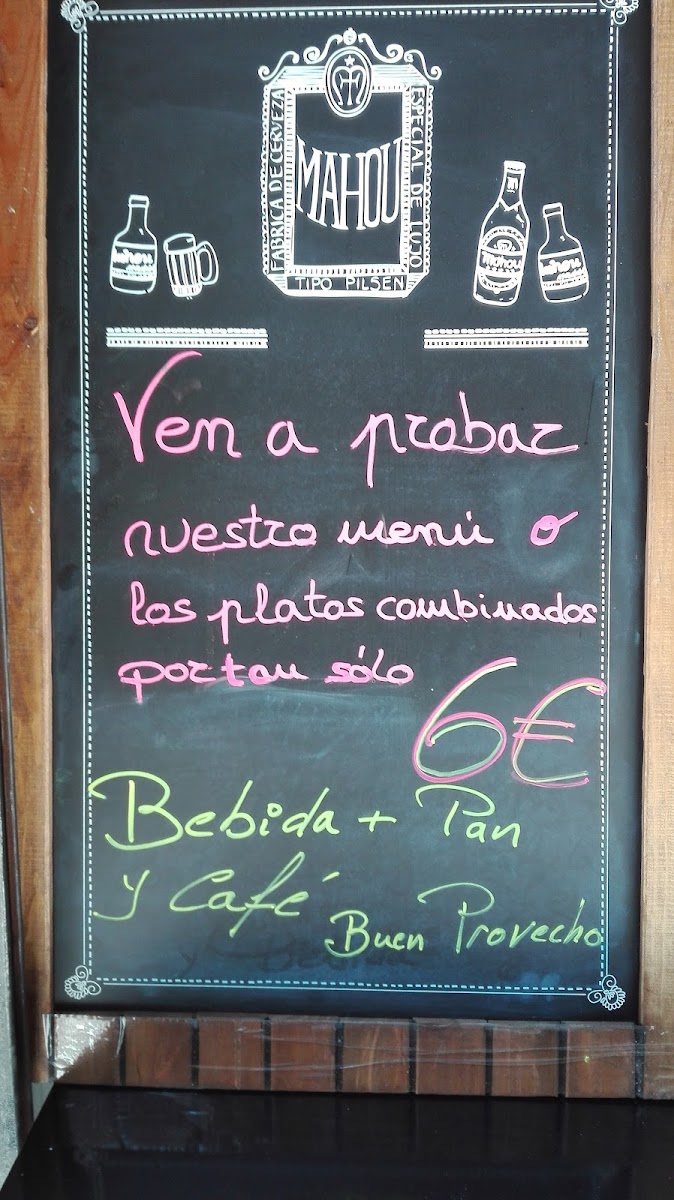 FABRICA DE CERVEZA
MAHOU
ESPECIAL DE LUJO
TIPO PILSEN
mahou
mahou
mahou
Ven a probar
nuestro menú o
los platos combinados
portan sólo
6€
Bebida + Pan
y Café
Buen Provecho